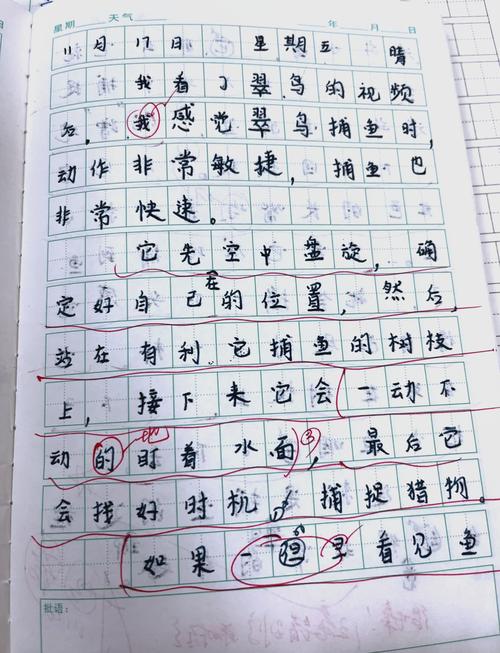 星期 天气 年 月 日
11月17日 星期五 晴
我看了翠鸟的视频
后，我感觉翠鸟捕鱼时，
动作非常敏捷，捕鱼也
非常快速。
它先空中盘旋，确
在
定好自己的位置，然后，
站在有利它捕鱼的树枝
上，接下来它会一动不
地
动的盯着水面，③最后它
会找好时机，捕捉猎物。
如果一但早看见鱼
批语：